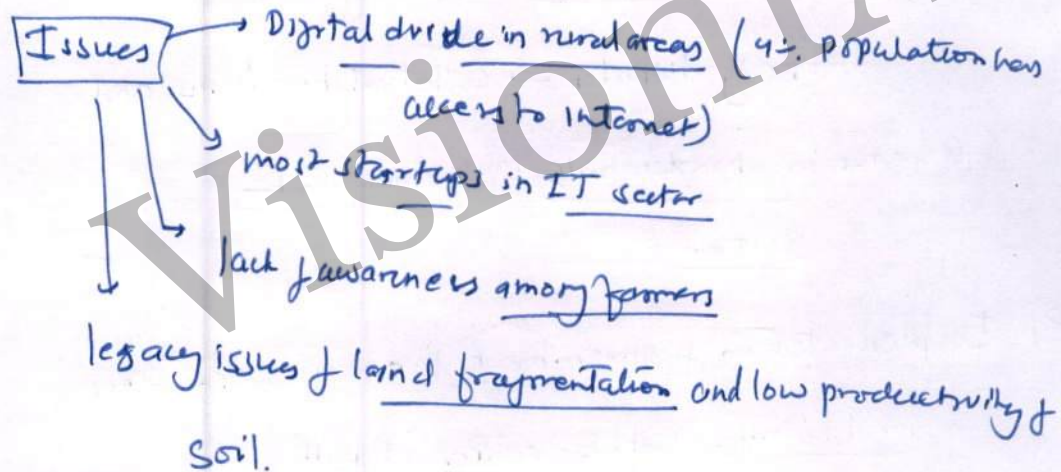 Issues
Digital divide in rural areas (4% population has
access to internet)
most startups in IT sector
lack of awareness among farmers
legacy issues of land fragmentation and low productivity of
soil.
Vision